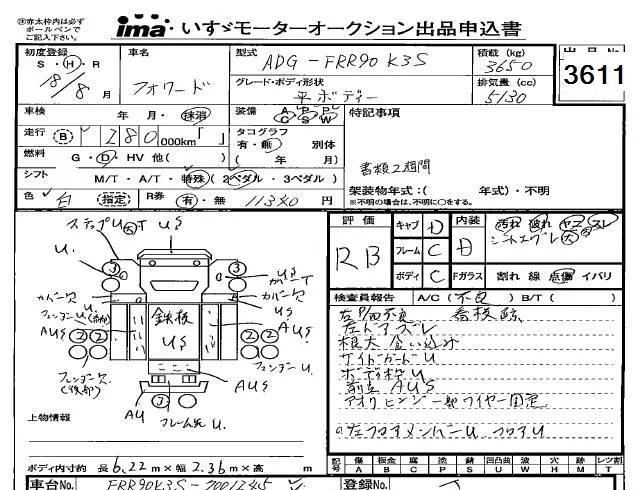 ㊟赤太枠内は必ず
ボールペンで
ご記入下さい。
ima いすゞモーターオークション出品申込書
初度登録 車名 型式 ADG-FRR90K3S 積載(kg) 3650
S・H・R 18/8月 フォワード グレード・ボディ形状 平ボディー 排気量(cc) 5130
出品No. 3611
車検 年 月・抹消 装備 A P P C S W 特記事項
走行 B 280 000km「 」 タコグラフ 有・無 別体 ( 年 月)
燃料 G・D・HV 他( ) 書類2週間
シフト M/T・A/T・特殊(2ペダル・3ペダル) 架装物年式:( 年式)・不明
※不明の場合は、不明に○をする。
色 白 (指定) R券 有・無 11340円
評価 RB キャブ D 内装 D 汚れ 破れ ヤニ スレ
フレーム C
ボディ C Fガラス 割れ 線 点傷 イバリ
検査員報告 A/C(不良) B/T( )
左ドアズレ
根太 食い込み
サイドガードU
ボディ枠U
前立 AUS
アオリヒンジ一部ワイヤー固定
左フロアメンバーU フロアU
ステップU大T US
U. 3 3 US
カバーT
カバー欠 カバー欠
US
AUS 鉄板 US AUS
2 2 2 2
フェンダー欠 (後部) フェンダーU
AU フレーム先U
上物情報
ボディ内寸約 長 6.22m×幅 2.36m×高 m
記号 傷 板金 腐 塗 錆 凹 凸曲 波 穴 跡 レツ割
A B C P S U W H M T
車台No. FRR90K3S-7001245 登録No.